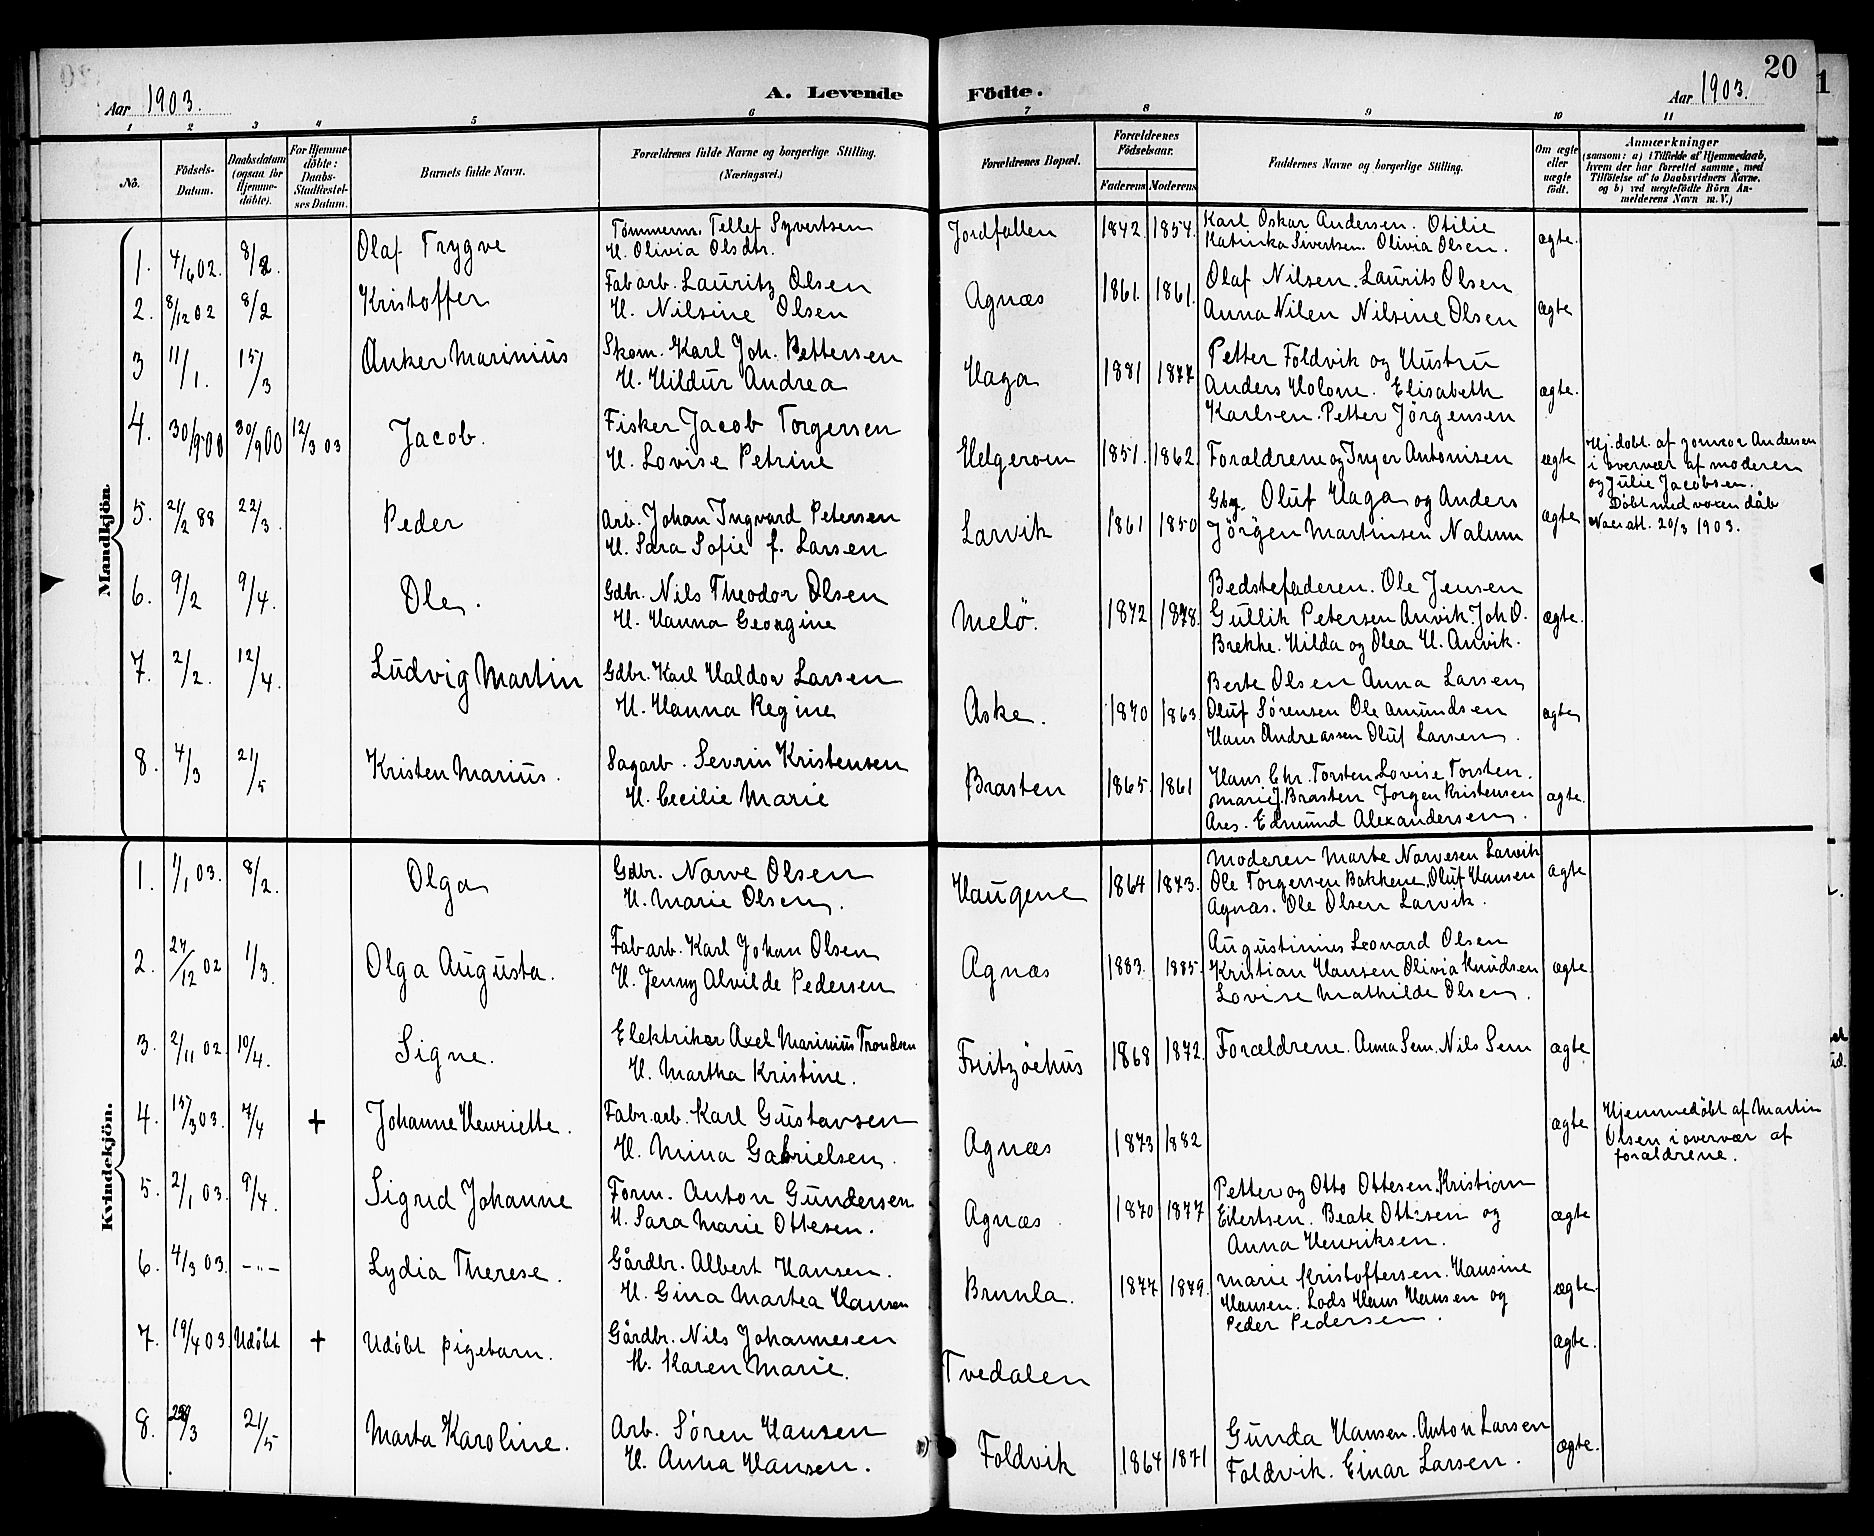 20
Aar 1903.
A. Levende Födte.
Aar 1903.
1 2 3 4 5 6 7 8 9 10 11
No.
Födsels-Datum.
Daabsdatum (ogsaa for Hjemme-döbte).
For Hjemme-döbte: Daabs-Stadfæstel-ses Datum.
Barnets fulde Navn.
Forældrenes fulde Navne og borgerlige Stilling. (Næringsvei.)
Forældrenes Bopæl.
Forældrenes Födselsaar.
Faderens Moderens
Faddernes Navne og borgerlige Stilling.
Om ægte eller uægte födt.
Anmærkninger
(saasom: a) i Tilfælde af Hjemmedaab,
hvem der har forrettet samme, med
Tilföielse af to Daabsvidners Navne.
og b) ved uægtefödte Börn An-
melderens Navn m. V.)
Mandkjön.
1. 4/6 02. 8/2. Olaf Trygve
Tömmerm. Tellef Syvertsen
H. Olivia Olsdtr.
Jordfallen 1842. 1854.
Karl Oskar Andersen. Otilie
Katinka Sivertsen. Olivia Olsen.
ægte.
2. 8/12 02 8/2 Kristoffer
Fabarb. Lauritz Olsen
H. Nilsine Olsen
Agnæs 1861. 1861.
Olaf Nilsen. Laurits Olsen
Anna Nilen Nilsine Olsen
ægte
3 11/1. 15/3 Anker Marinius
Skom. Karl Joh. Pettersen
H. Hildur Andrea
Haga 1881 1877
Petter Foldvik og Hustru
Anders Holone. Elisabeth
Karlsen. Petter Jörgensen
ægte.
4. 30/9 00 30/9 00 12/3 03 Jacob.
Fisker Jacob Torgersen
H. Lovise Petrine
Helgeroen 1851. 1862.
Forældrene og Inger Antonisen
ægte
Hj. døbt. af jomor Andersen
i overvær af moderen
og Julie Jacobsen.
5. 21/2 88 22/3. Peder
Arb. Johan Ingvard Petersen
H. Sara Sofie f. Larsen
Larvik 1861 1850
Gbg. Oluf Haga og Anders
Jörgen Martinsen Nalum
ægte
Døbt med voxen dåb
20/3 1903.
6. 9/2 9/4. Ole.
Gdbr. Nils Theodor Olsen
H. Hanna Georgine
Melö. 1872 1878.
Bedstefaderen. Ole Jensen
Gullik Petersen Anvik. Joh. O.
Brekke. Hilda og Olea H. Anvik.
ægte.
7. 2/2. 12/4. Ludvig Martin
Gdbr. Karl Haldor Larsen
H. Hanna Regine
Aske. 1870 1863
Berte Olsen Anna Larsen
Oluf Sörensen Ole Amundsen
Hans Andreassen Oluf Larsen.
ægte
8. 4/3 21/5 Kristen Marius.
Sagarb. Sevrin Kristensen
H. Cecilie Marie
Brasten 1865. 1861
Hans Chr. Torsten Lovise Torsten.
Marie J. Brasten Jorgen Kristensen
Ares. Edmund Alexandersen.
ægte.
Kvindekjön.
1. 1/1 03. 8/2. Olga
Gdbr. Narve Olsen
H. Marie Olsen.
Haugene 1864 1873.
Moderen Marte Narvesen Larvik
Ole Torgersen Bakkene. Oluf Hansen
Agnæs. Ole Olsen Larvik.
ægte
2. 27/12 02 1/3. Olga Augusta.
Fabarb. Karl Johan Olsen
H. Jenny Alvilde Pedersen
Agnæs 1883. 1885.
Augustinius Leonard Olsen
Kristian Hansen Olivia Knudsen
Lovise Mathilde Olsen.
ægte
3. 2/11 02. 10/4. Signe.
Elektriker Axel Marinius Trondsen
H. Martha Kristine.
Fritzöehus 1868 1872.
Forældrene. Anna Sem. Nils Sem
ægte
4. 15/3 03. 7/4 + Johanne Henriette.
Fabr.arb. Karl Gustavsen
H. Mina Gabrielsen.
Agnæs 1873 1882
ægte
Hjemmedøbt af Martin
Olsen i overvær af
forældrene.
5. 2/1 03. 9/4. Sigrid Johanne
Form. Anton Gundersen
H. Sara Marie Ottesen.
Agnæs 1870 1877
Petter og Otto Ottesen. Kristian
Eilertsen. Beate Ottesen og
Anna Henriksen.
ægte
6. 4/3 03. -"- Lydia Therese.
Gårdbr. Albert Hansen.
H. Gina Martea Hansen
Brunla. 1877 1879.
Marie Kristoffersen. Hansine
Hansen. Lods Hans Hansen og
Peder Pedersen.
ægte.
7. 19/4 03. Udøbt + Udøbt pigebarn.
Gårdbr. Nils Johannesen
H. Karen Marie.
Tvedalen
ægte.
8. 21/5 Marta Karoline.
Arb. Sören Hansen
H. Anna Hansen.
Foldvik 1864 1871
Gunda Hansen. Anton Larsen
Foldvik. Einar Larsen.
ægte.